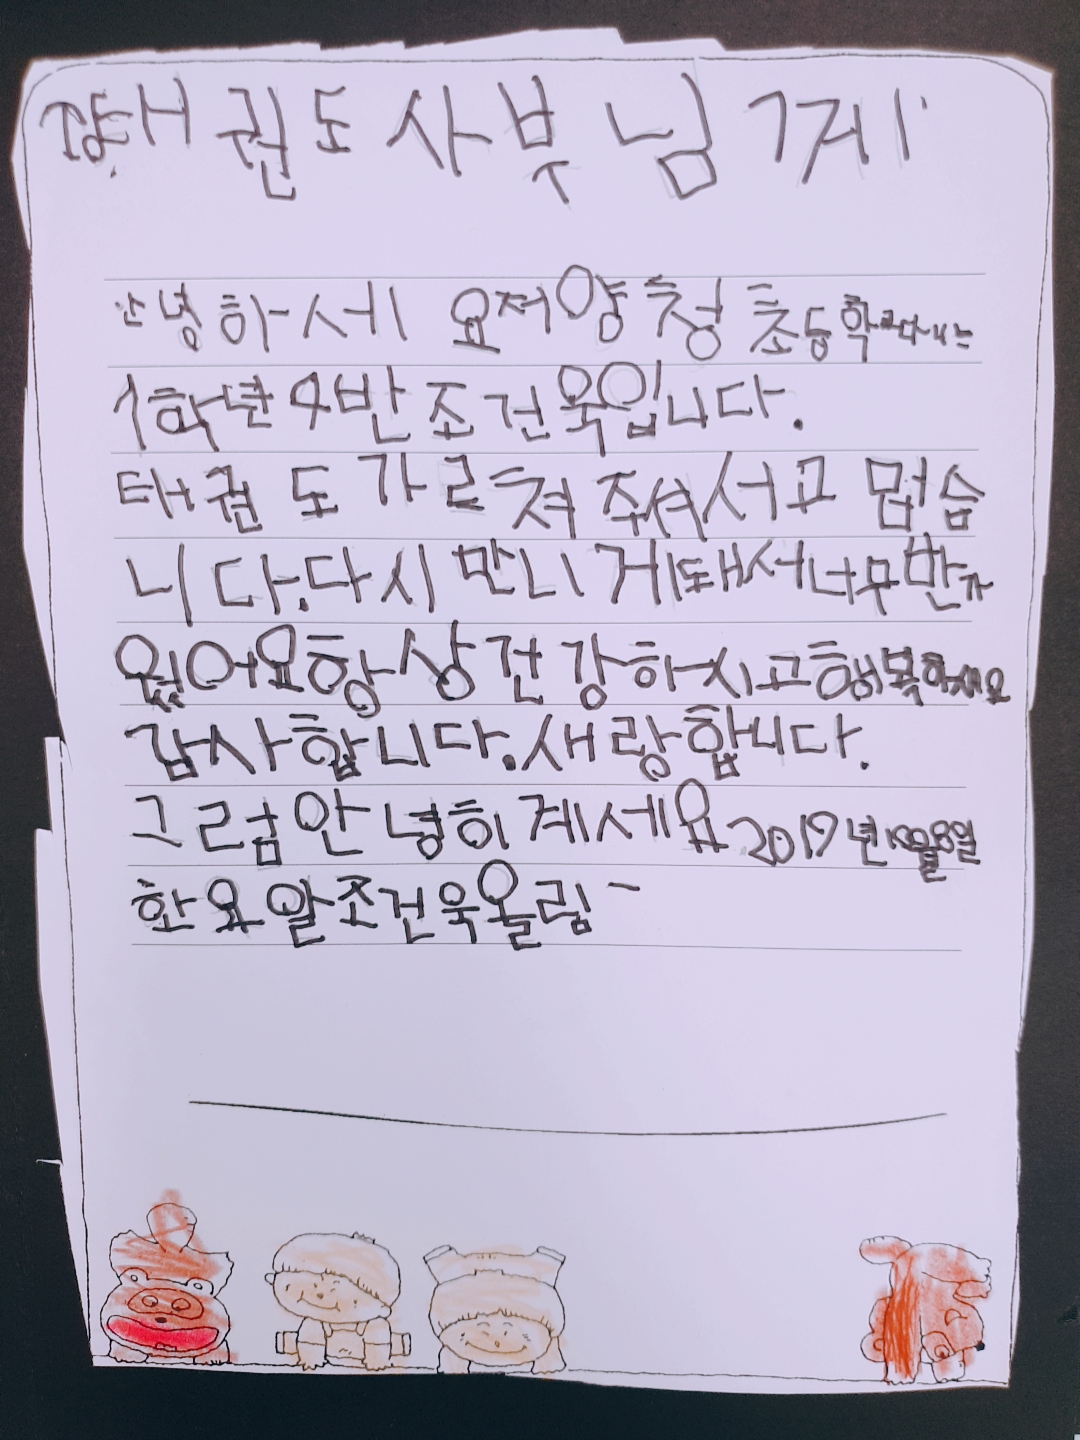 태권도사부님께
안녕하세요저양청초등학교다니는
1학년4반조건욱입니다.
태권도가르쳐주셔서고맙습
니다.다시만나게돼서너무반가
웠어요항상건강하시고행복하세요
감사합니다.새랑합니다.
그럼안녕히계세요2019년10월8일
화요일조건욱올림~